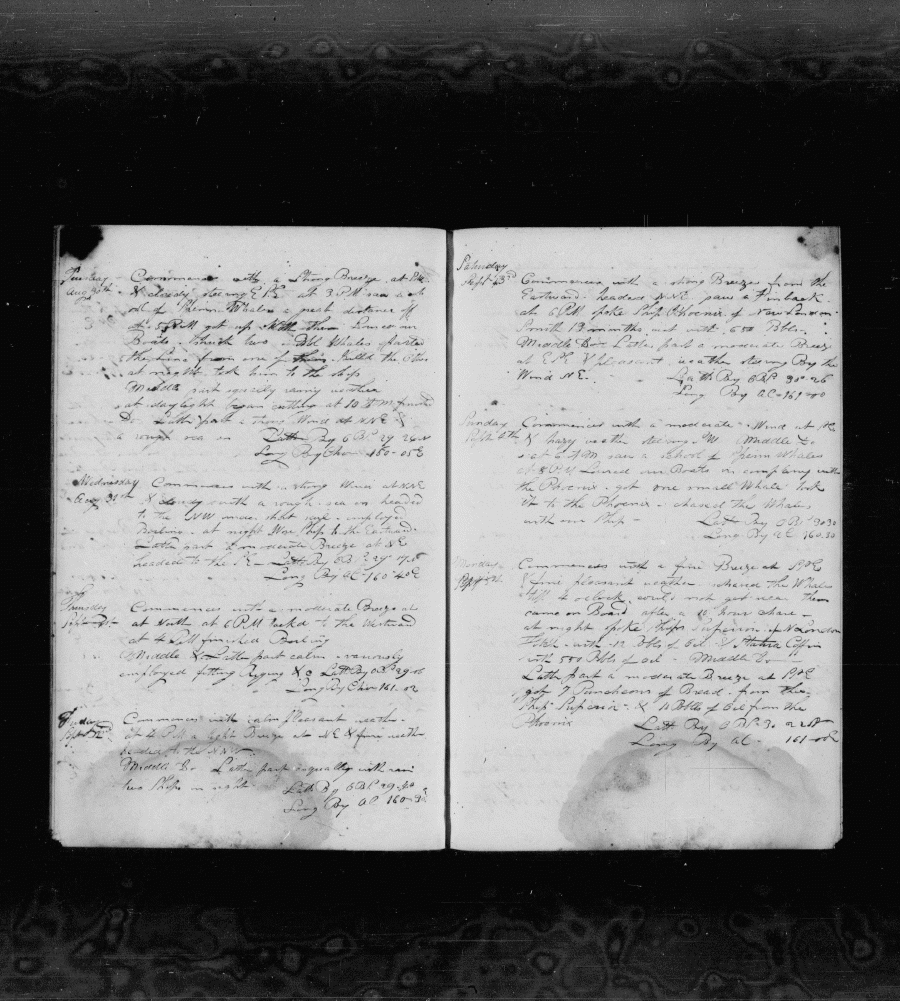 Tuesday Commences with a Strong Breeze at
Aug 30th & cloudy steering E S E at 3 PM saw a
of Sperm Whales a great distance off
at 5 PM got up with them Lowered our
Boats Struck two Whales parted
the line from one of them killed the other
at night took him to the ship
Middle part squally rainy weather
at daylight began cutting at 10 AM finished
Do Latter part a strong Wind at NNE &
a rough sea on Latt By Obs 29
Long By Chro 160-05 E
Wednesday Commences with strong Wind at NNE
Aug 31st & cloudy with a rough sea on headed
to the NW under short sail employed
Boiling at night Wore Ship to the Eastward
Latter part a moderate Breeze at NE
headed to the SE Latt By Obs 29
Long By CC 160 40 E
Thursday Commences with a moderate Breeze at
Sept 1st at North at 6 PM tacked to the Westward
at 4 AM finished Boiling
Middle & Latter part calm variously
employed fitting Rigging &c Latt By Obs 29
Long By Chro 161-02
Friday Commences with calm pleasant weather
Sept 2d at 4 PM a light Breeze at NE & fine weather
headed to the NNW
Middle Do Latter part squally with rain
two Ships in sight Latt By Obs 29
Long By CC 160
Saturday
Sept 3d Commences with a strong Breeze from the
Eastward headed NNE saw a Finback
at 6 PM spoke Ship Phoenix of New London
Smith 13 months out with 650 Bbls
Middle Do Latter part a moderate Breeze
at ESE & pleasant weather steering By the
Wind NE Latt By Obs 30-26
Long By CC 161-00
Sunday Commences with a moderate Wind at
Sept 4th & hazy weather steering Middle Do
at 6 AM saw a school of Sperm Whales
at 8 AM Lowered our Boats in company with
the Phoenix got one small Whale took
it to the Phoenix chased the Whales
with our Ship Latt By Obs 30 30
Long By CC 160.30
Monday Commences with a fine Breeze at
Sept 5th & fine pleasant weather chased the Whales
till 4 oclock could not get near them
came on Board after a 10 hour chase
at night spoke Ships Superior of N London
with Bbls of Oil & Coffin
with 550 Bbls of oil Middle Do
Latter part a moderate Breeze at
got 7 Puncheons of Bread from the
Ship Superior & 11 Bbls of Oil from the
Phoenix Latt By Obs 30
Long By CC 161